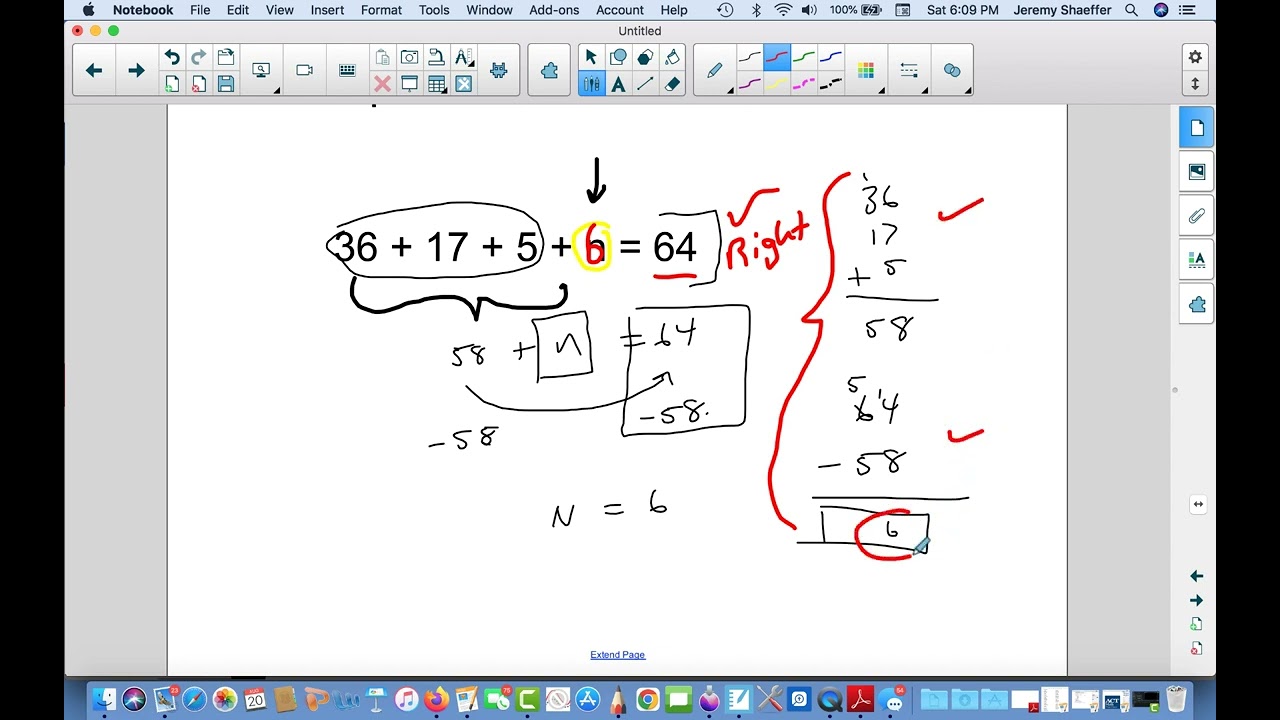 Notebook File Edit View Insert Format Tools Window Add-ons Account Help 100% Sat 6:09 PM Jeremy Shaeffer
Untitled
36 + 17 + 5 + 6 = 64
Right
58 + n = 64
-58 -58.
N = 6
1
36
17
+ 5
58
5 1
64
- 58
6
Extend Page